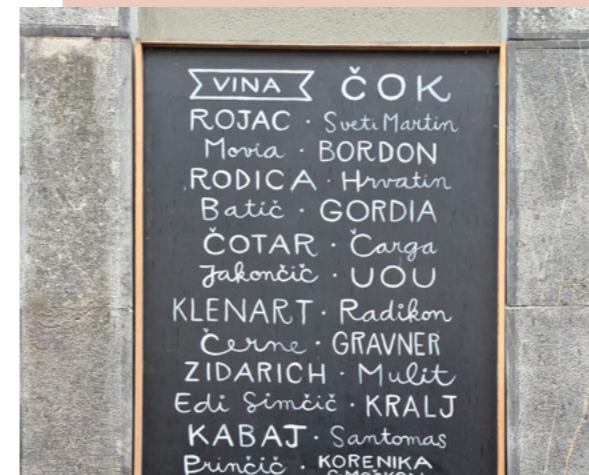 VINA ČOK
ROJAC · Sveti Martin
Movia · BORDON
RODICA · Hrvatin
Batič · GORDIA
ČOTAR · Čarga
Jakončič · UOU
KLENART · Radikon
Černe · GRAVNER
ZIDARICH · Mulit
Edi Simčič · KRALJ
KABAJ · Santomas
Prinčič · KORENIKA